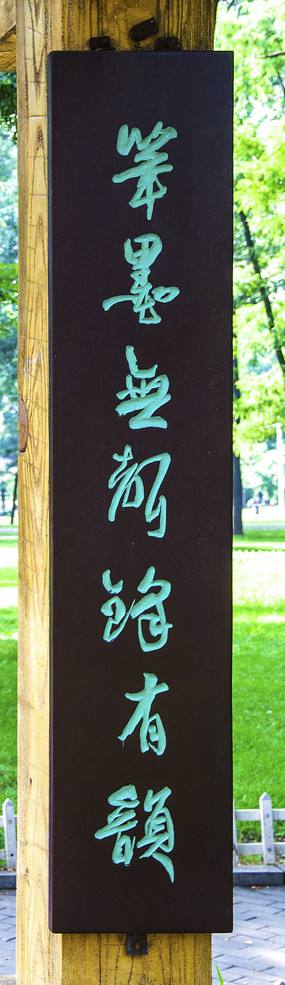 筆墨無聲鋒有韻